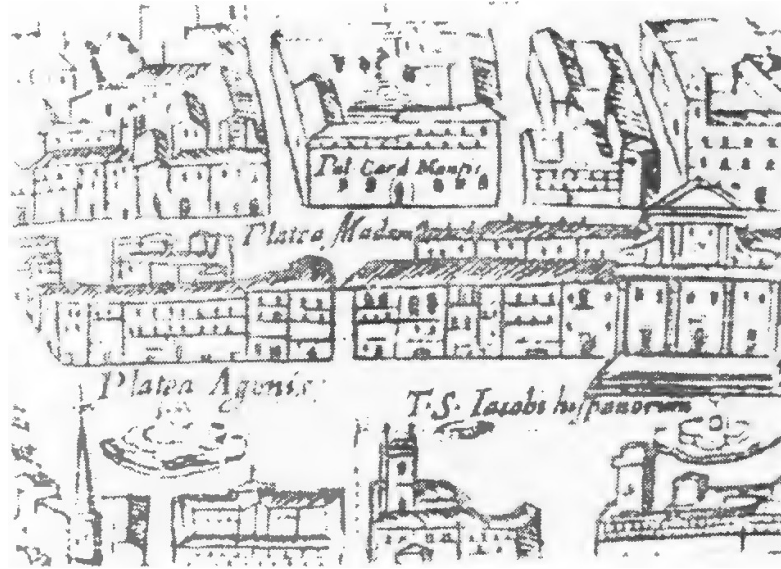 Pal Card Montis
Platea Madam
Platea Agonis
T. S. Iacobi hispanorum